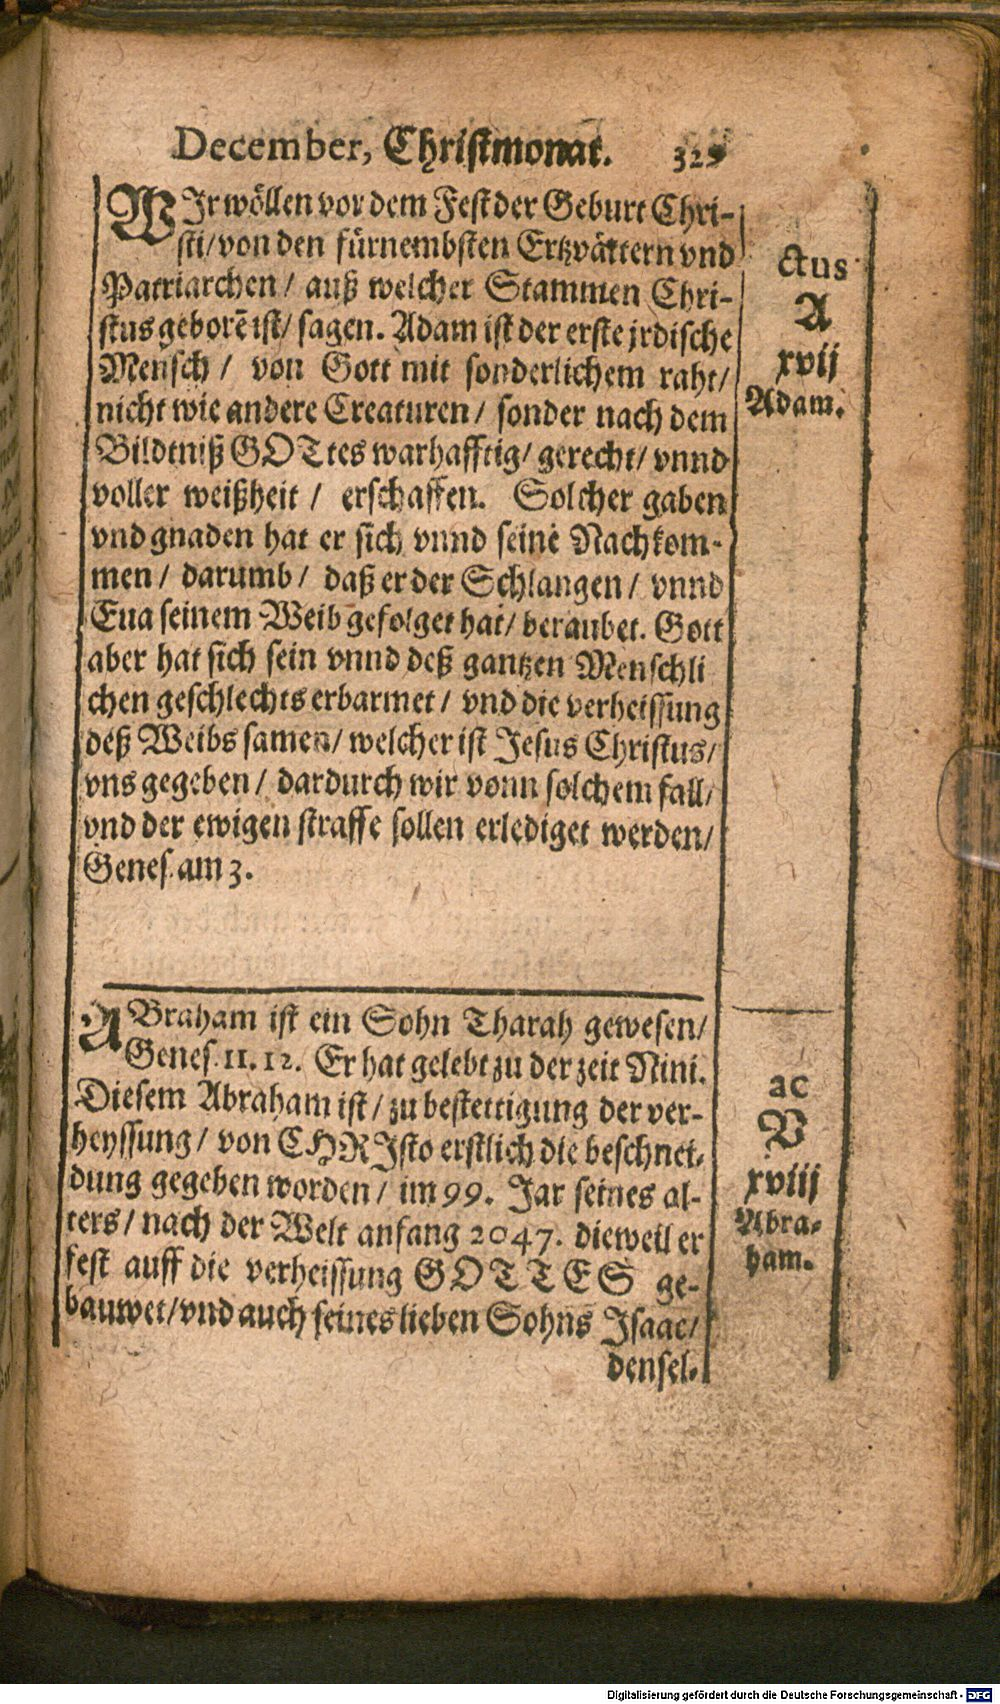 December, Christmonat. 329
WIr wöllen vor dem Fest der Geburt Chri-
sti/ von den fürnembsten Ertzvättern vnd
Patriarchen/ auß welcher Stammen Chri-
stus geborē ist/ sagen. Adam ist der erste jrdische
Mensch/ von Gott mit sonderlichem raht/
nicht wie andere Creaturen/ sonder nach dem
Bildtniß GOTtes warhafftig/ gerecht/ vnnd
voller weißheit/ erschaffen. Solcher gaben
vnd gnaden hat er sich vnnd seine Nachkom-
men/ darumb/ daß er der Schlangen/ vnnd
Eua seinem Weib gefolget hat/ beraubet. Gott
aber hat sich sein vnnd deß gantzen Menschli
chen geschlechts erbarmet/ vnd die verheissung
deß Weibs samen/ welcher ist Jesus Christus/
vns gegeben/ dardurch wir vonn solchem fall/
vnd der ewigen straffe sollen erlediget werden/
Genes. am 3.
ctus
A
xvij
Adam.
ABraham ist ein Sohn Tharah gewesen/
Genes. 11. 12. Er hat gelebt zu der zeit Nini.
Diesem Abraham ist/ zu bestettigung der ver-
heyssung/ von CHRIsto erstlich die beschnei-
dung gegeben worden/ im 99. Jar seines al-
ters/ nach der Welt anfang 2047. dieweil er
fest auff die verheissung GOTTES ge-
bauwet/ vnd auch seines lieben Sohns Isaac/
densel-
ac
V
xviij
Abra-
ham.
Digitalisierung gefördert durch die Deutsche Forschungsgemeinschaft - DFG